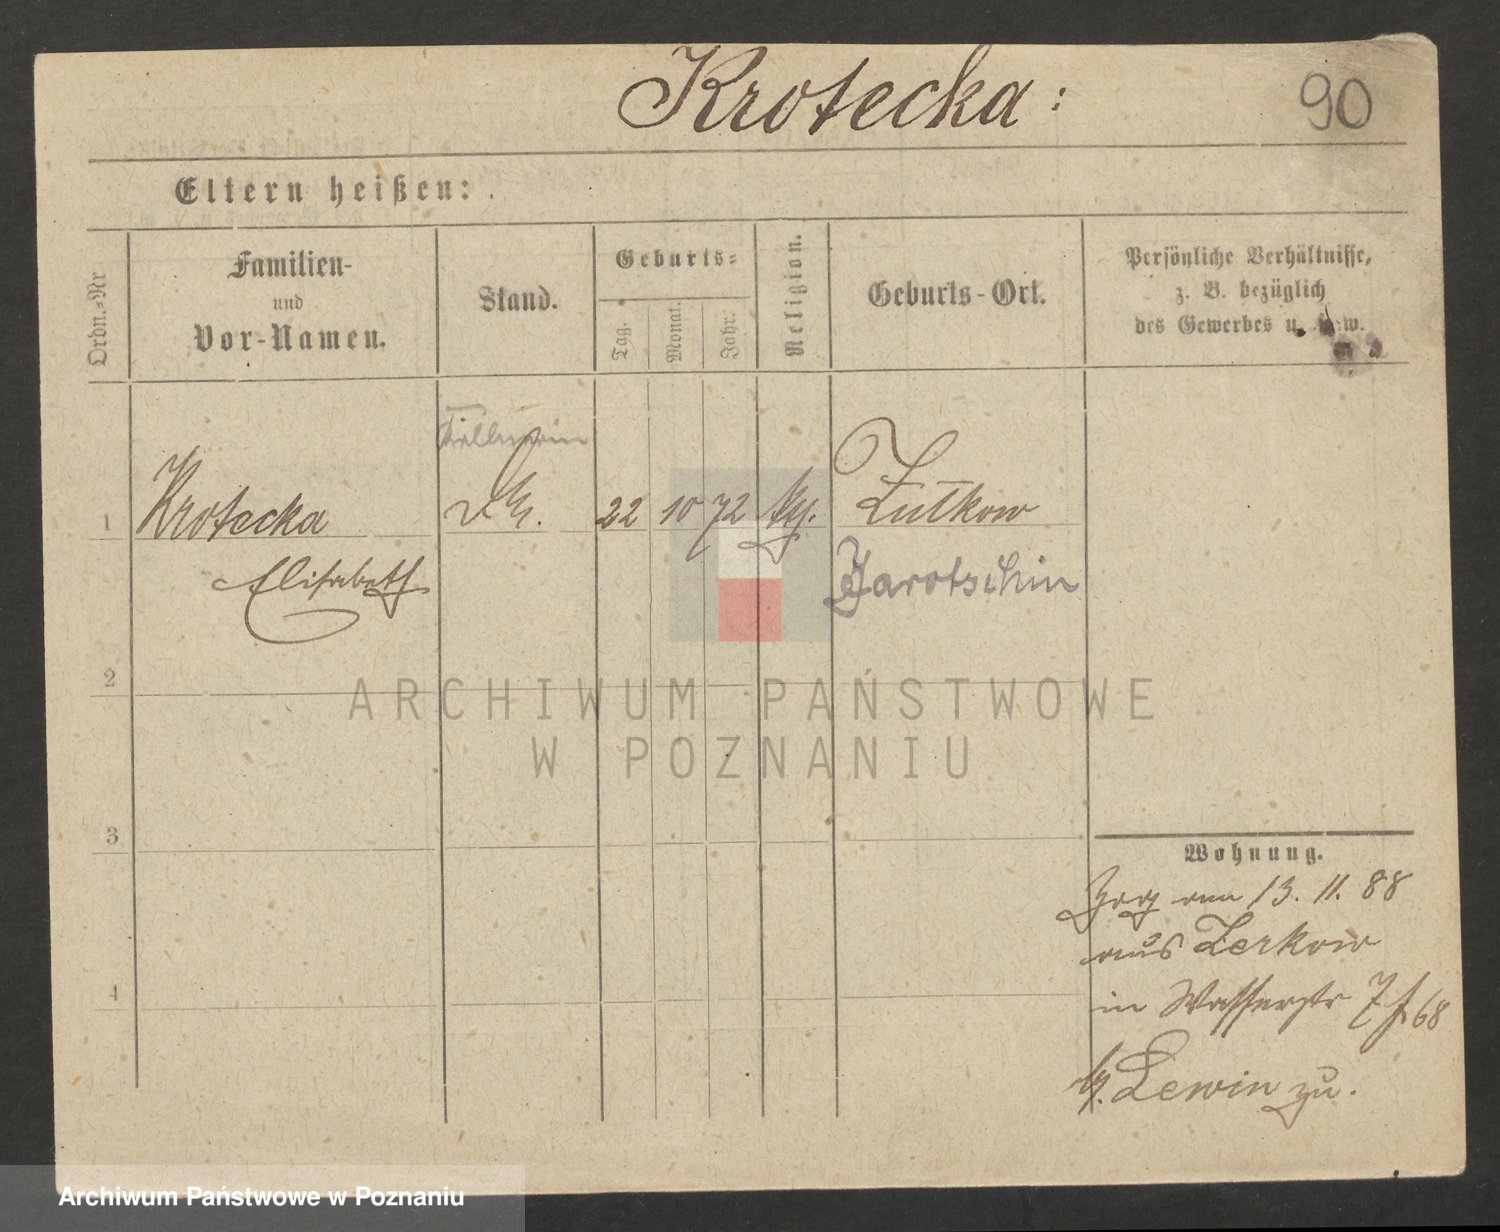 Krotecka:
90
Eltern heißen:
Ordn.-Nr
Familien-
und
Vor-Namen.
Stand.
Geburts-
Tag.
Monat.
Jahr.
Religion.
Geburts-Ort.
Persönliche Verhältnisse,
z. B. bezüglich
des Gewerbes u. s. w.
1
Krotecka
Elisabeth
22
10
72
Zulkow
Jarotschin
2
3
4
Wohnung.
Zog am 13. 11. 88
aus Zerkow
in Wasserstr 7
68
Lewin zu.
ARCHIWUM PAŃSTWOWE
W POZNANIU
Archiwum Państwowe w Poznaniu